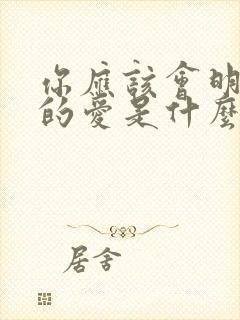 你應該會明
的愛是什麼
居舍